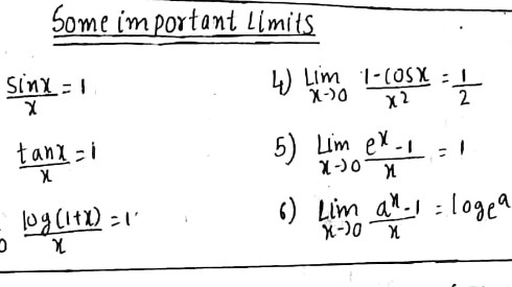 Some important Limits
sinx/x = 1
tanx/x = 1
log(1+x)/x = 1
4) Lim x→0 1-cosx/x² = 1/2
5) Lim x→0 eˣ-1/x = 1
6) Lim x→0 aˣ-1/x = logₑa